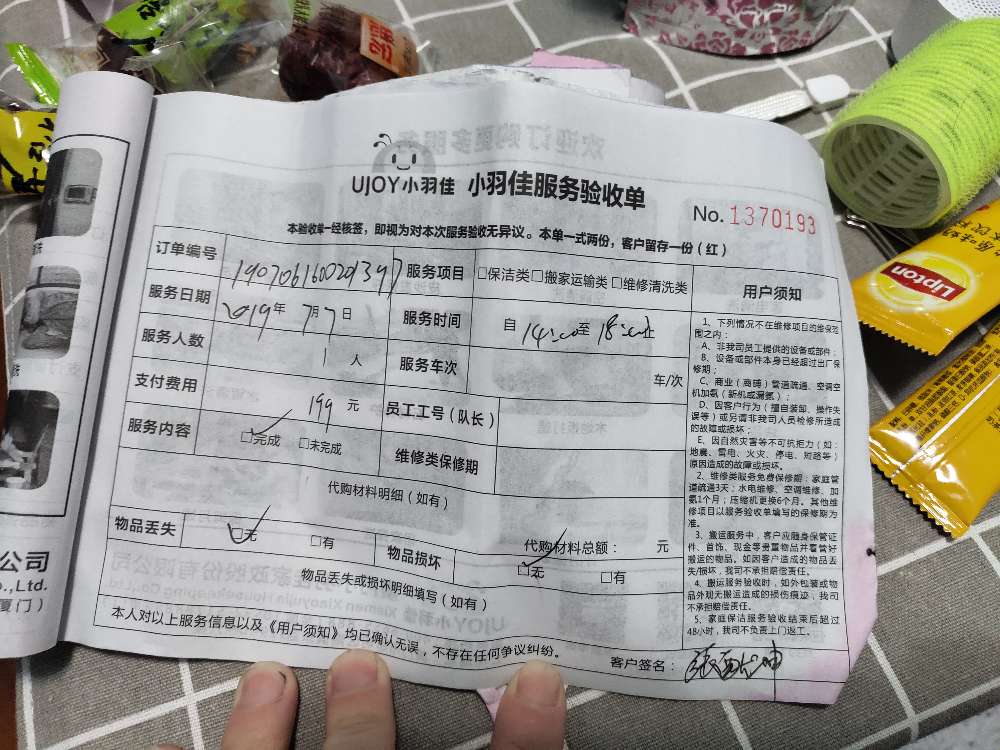 UJOY小羽佳 小羽佳服务验收单
No. 1370193
本验收单一经核签，即视为对本次服务验收无异议。本单一式两份，客户留存一份（红）
订单编号 服务项目 □保洁类□搬家运输类□维修清洗类
服务日期 2019年 7月7日 服务时间 自 14:00至 18:00止
服务人数 1 人 服务车次 车/次
支付费用 199 元 员工工号（队长）
服务内容 □完成 □未完成 维修类保修期
代购材料明细（如有）
代购材料总额： 元
物品丢失 □无 □有 物品损坏 □无 □有
物品丢失或损坏明细填写（如有）
本人对以上服务信息以及《用户须知》均已确认无误，不存在任何争议纠纷。
客户签名：
用户须知
1、下列情况不在维修项目的维保范
围之内：
A、非我司员工提供的设备或部件；
B、设备或部件本身已经超过出厂保
修期；
C、商业（商铺）管道疏通、空调空
机加氨（新机或漏氨）；
D、因客户行为（擅自装卸、操作失
误等）或另请非我司人员检修所造成
的故障或损坏；
E、因自然灾害等不可抗力（如：
地震、雷电、火灾、停电、短路等）
原因造成的故障或损坏。
2、维修类服务免费保修期：家庭管
道疏通3天；水电维修、空调维修、加
氨1个月；压缩机更换6个月。其他维
修项目以服务验收单填写的保修期为
准。
3、搬运服务中，客户应随身保管证
件、首饰、现金等贵重物品并看管好
搬运的物品。如因客户造成的物品丢
失/损坏，我司不承担赔偿责任。
4、搬运服务验收时，如外包装或物
品外观无搬运造成的损伤痕迹，我司
不承担赔偿责任。
5、家庭保洁服务验收结束后超过
48小时，我司不负责上门返工。
公司
.,Ltd.
厦门）
Lipton